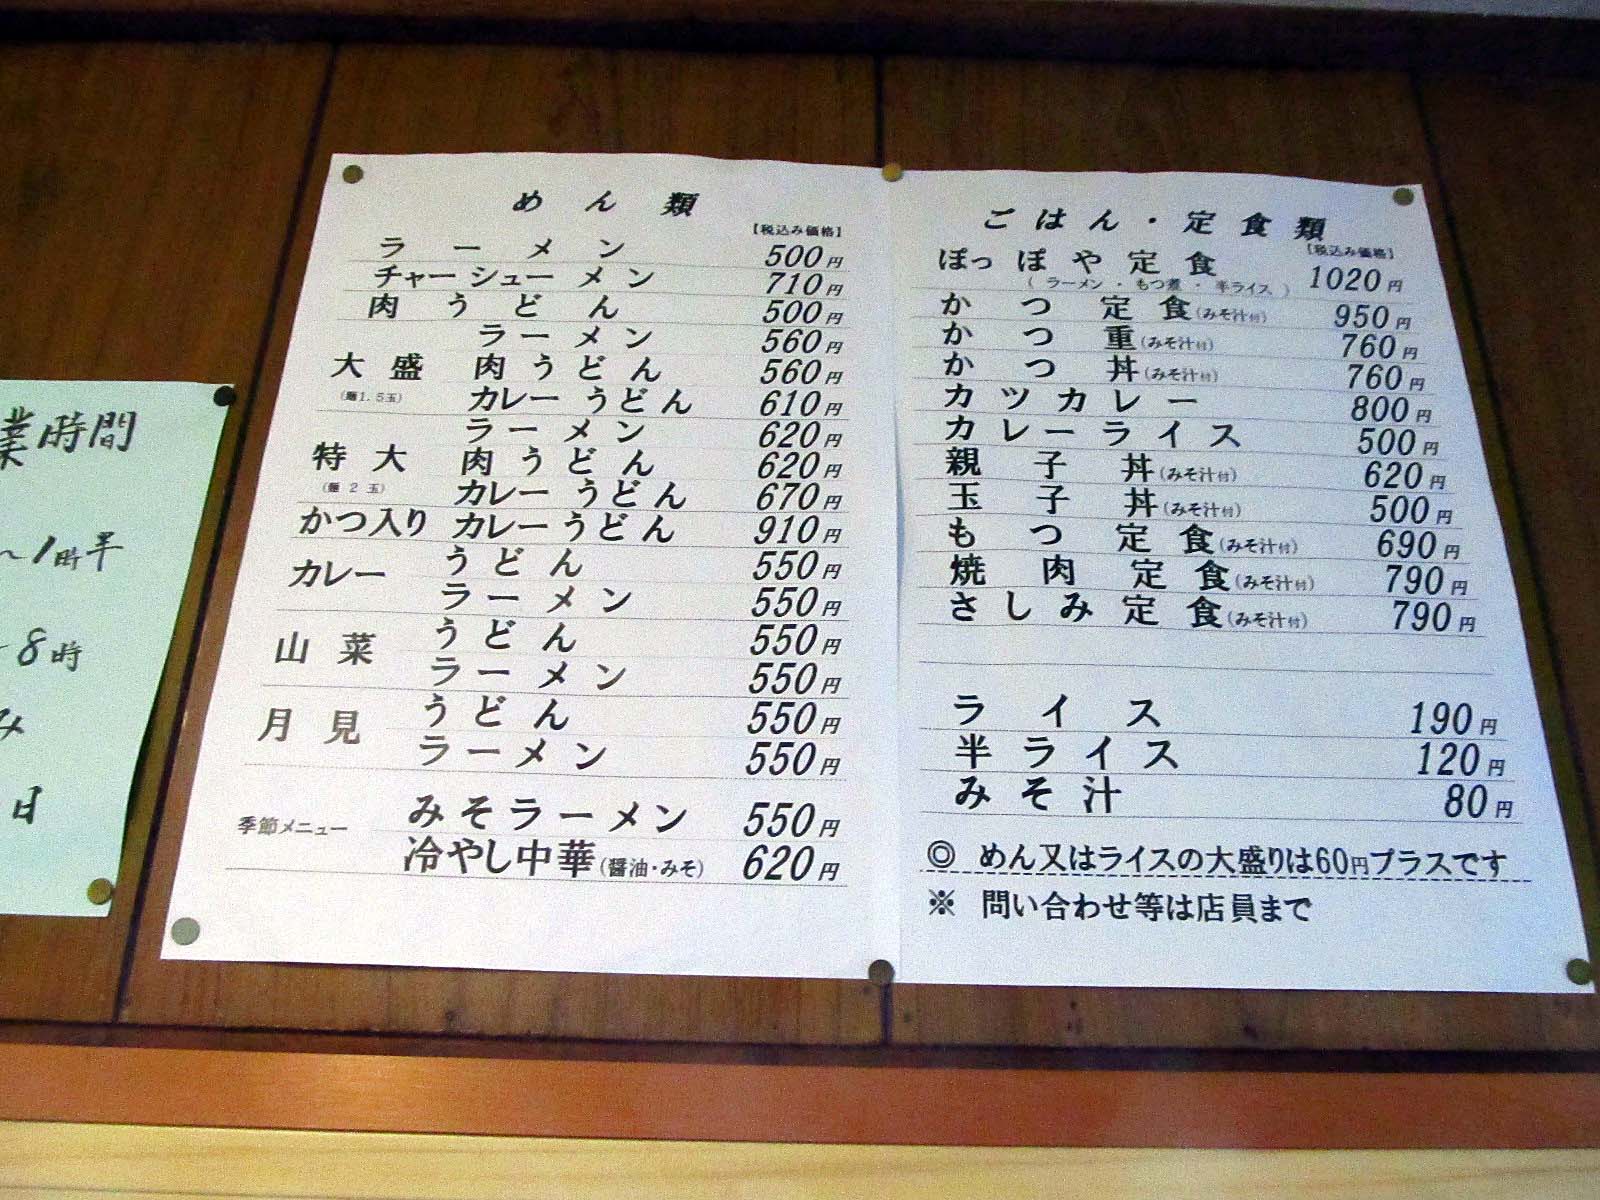 業時間
～1時半
8時
み
日
めん類
【税込み価格】
ラーメン 500円
チャーシューメン 710円
肉うどん 500円
ラーメン 560円
大盛 肉うどん 560円
(麺1.5玉) カレーうどん 610円
ラーメン 620円
特大 肉うどん 620円
(麺2玉) カレーうどん 670円
かつ入り カレーうどん 910円
カレー うどん 550円
ラーメン 550円
山菜 うどん 550円
ラーメン 550円
月見 うどん 550円
ラーメン 550円
季節メニュー みそラーメン 550円
冷やし中華(醤油・みそ) 620円
ごはん・定食類
【税込み価格】
ぽっぽや定食 1020円
(ラーメン・もつ煮・半ライス)
かつ定食(みそ汁付) 950円
かつ重(みそ汁付) 760円
かつ丼(みそ汁付) 760円
カツカレー 800円
カレーライス 500円
親子丼(みそ汁付) 620円
玉子丼(みそ汁付) 500円
もつ定食(みそ汁付) 690円
焼肉定食(みそ汁付) 790円
さしみ定食(みそ汁付) 790円
ライス 190円
半ライス 120円
みそ汁 80円
◎ めん又はライスの大盛りは60円プラスです
※ 問い合わせ等は店員まで